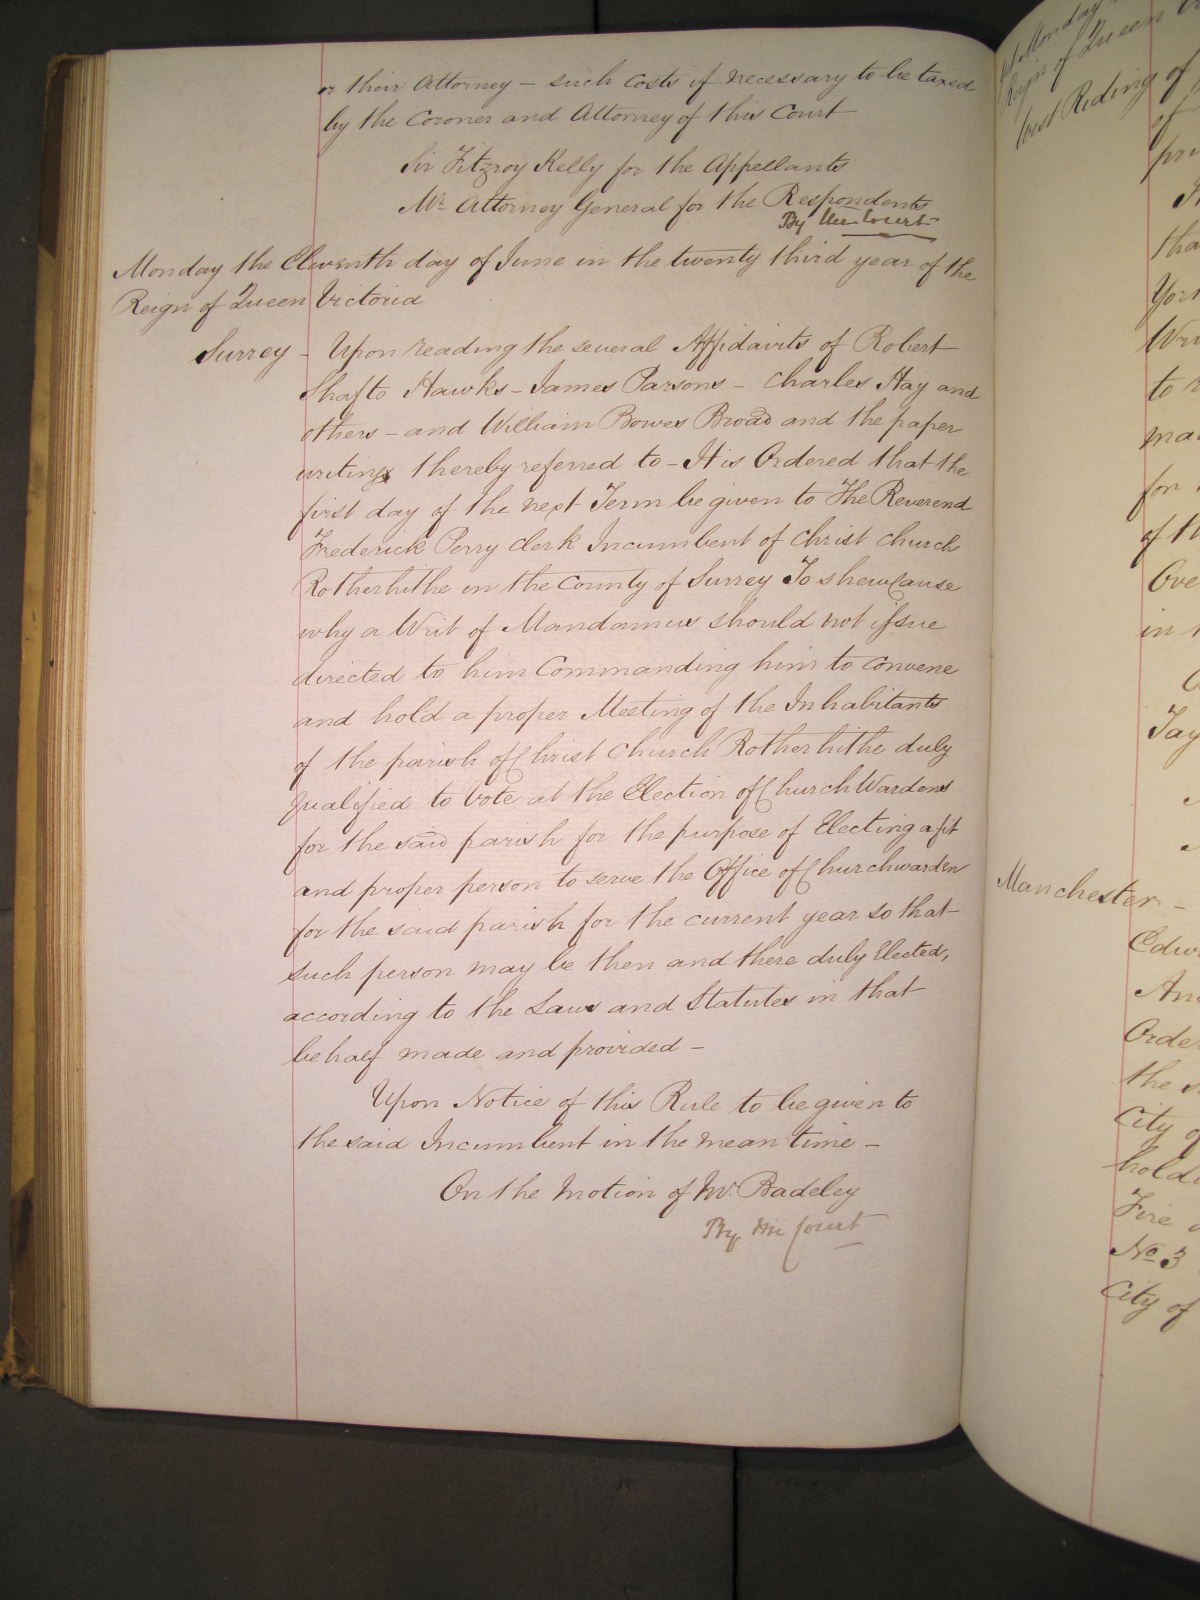 or their Attorney – such Costs if necessary to be taxed
by the Coroner and Attorney of this Court
Sir Fitzroy Kelly for the Appellants
Mr. Attorney General for the Respondents
By the Court
Monday the Eleventh day of June in the twenty third year of the
Reign of Queen Victoria
Surrey – Upon reading the several Affidavits of Robert
Shafto Hawks – James Parsons – Charles Hay and
others – and William Bowes Broad and the paper
writings thereby referred to – It is Ordered that the
first day of the next Term be given to The Reverend
Frederick Perry Clerk Incumbent of Christ Church
Rotherhithe in the County of Surrey To shew Cause
why a Writ of Mandamus should not issue
directed to him Commanding him to Convene
and hold a proper Meeting of the Inhabitants
of the parish of Christ Church Rotherhithe duly
qualified to Vote at the Election of Church Wardens
for the said parish for the purpose of Electing a fit
and proper person to serve the Office of Churchwarden
for the said parish for the current year so that
such person may be then and there duly Elected,
according to the Laws and Statutes in that
behalf made and provided –
Upon Notice of this Rule to be given to
the said Incumbent in the mean time –
On the Motion of Mr. Badeley
By the Court
Monday
Reign of Queen
West Riding of
of
tha
York
to
for
of th
in
Manchester –
Order
the
City
holdi
Fire
No. 3
City of